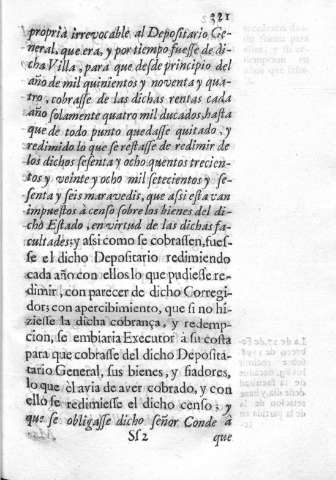 321
propria irrevocable al Depositario Ge-
neral, que era, y por tiempo fuesse de di-
cha Villa, para que desde principio del
año de mil quinientos y noventa y qua-
tro, cobrasse de las dichas rentas cada
año solamente quatro mil ducados, hasta
que de todo punto quedasse quitado, y
redimido lo que se restasse de redimir de
los dichos sesenta y ocho quentos trecien-
tos y veinte y ocho mil setecientos y se-
senta y seis maravedis, que assi estavan
impuestos à censo sobre los bienes del di-
cho Estado, en virtud de las dichas fa-
cultades; y assi como se cobrassen, fues-
se el dicho Depositario redimiendo
cada año con ellos lo que pudiesse re-
dimir, con parecer de dicho Corregi-
dor; con apercibimiento, que si no hi-
ziesse la dicha cobrança, y redemp-
cion, se embiaria Executor à su costa
para que cobrasse del dicho Deposi-
tario General, sus bienes, y fiadores,
lo que èl avia de aver cobrado, y con
ello se redimiesse el dicho censo; y
que se obligasse dicho señor Conde à
Ss 2
que